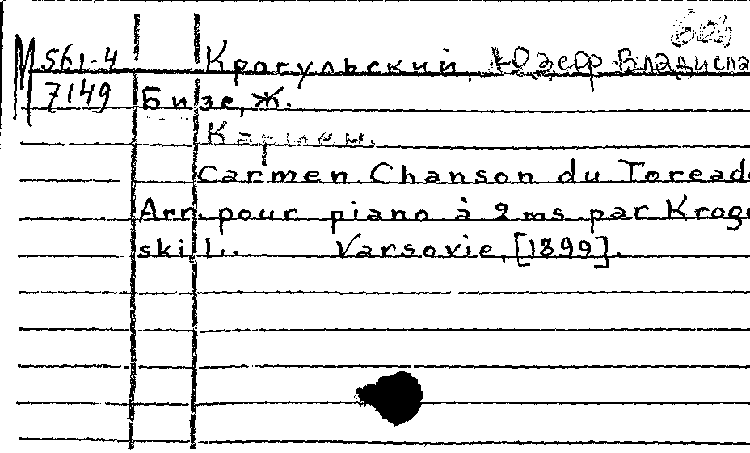 М 561-4 Крогульский, Юзеф Владисла
7149 Бизе, Ж.
Кармен.
Carmen. Chanson du Toreado
Arr. pour piano à 2 ms par Krogu
skill.. Varsovie, [1899].